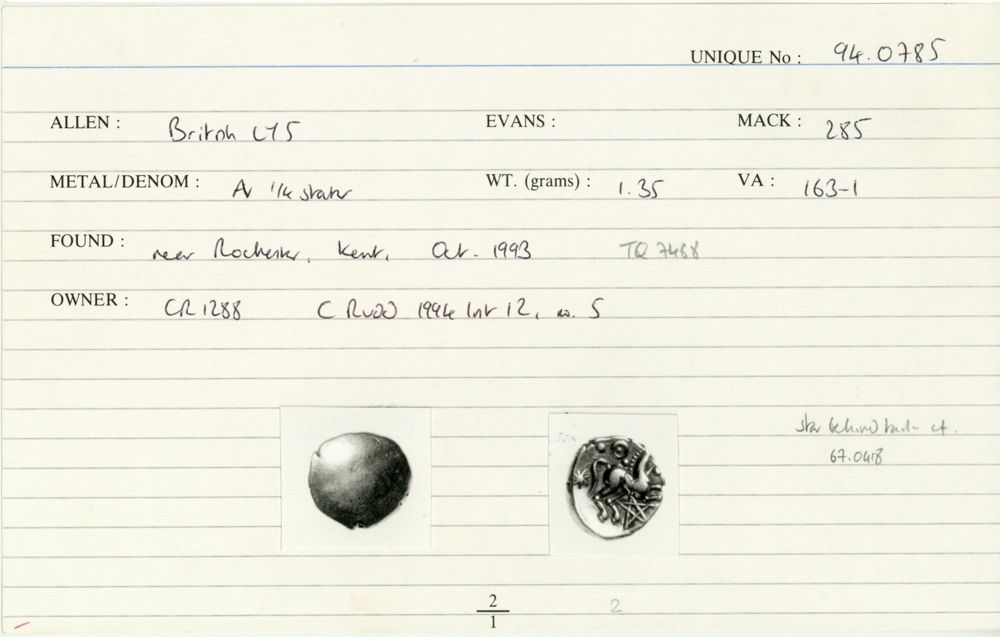 UNIQUE No : 94.0785
ALLEN : British LY5 EVANS : MACK : 285
METAL/DENOM : AV 1/4 stater WT. (grams) : 1.35 VA : 163-1
FOUND : near Rochester, Kent, Oct. 1993 TQ 7468
OWNER : CR 1288 C RUDD 1994 list 12, no. 5
star behind tail - cf.
67.0418
2
1
2